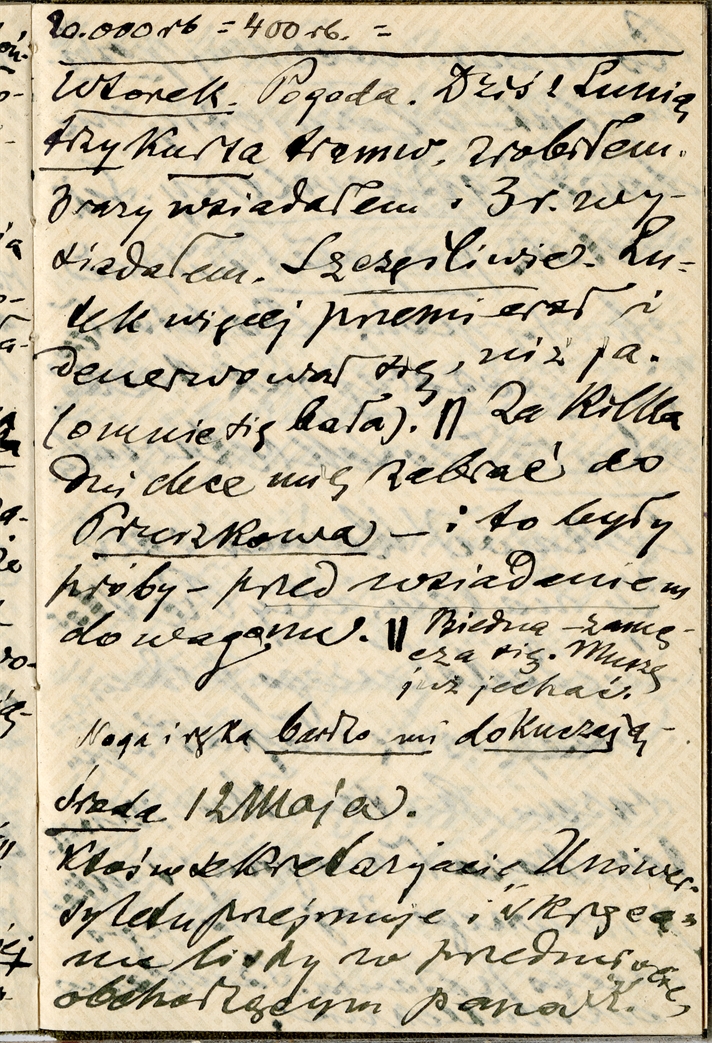 20.000 rb = 400 rb. =
Wtorek. Pogoda. Dziś z Lunią
trzy kursa tramw. zrobiłem.
3 razy wsiadałem i 3 r. wy-
siadałem. Szczęśliwie. Lu-
tek więcej przemierał i
denerwował się, niż ja.
(o mnie się bała). || Za kilka
dni chce mię zabrać do
Pruszkowa — i to były
próby – przed wsiadaniem
do wagonu. || Biedna – zamę-
cza się. Muszę
już jechać.
Noga i ręka bardzo mi dokuczają –
Środa 12 Maja.
Ktoś w sekretaryjacie Uniwer-
sytetu przejmuje i
mu listy w przedmiocie,
obchodzącym pana K.